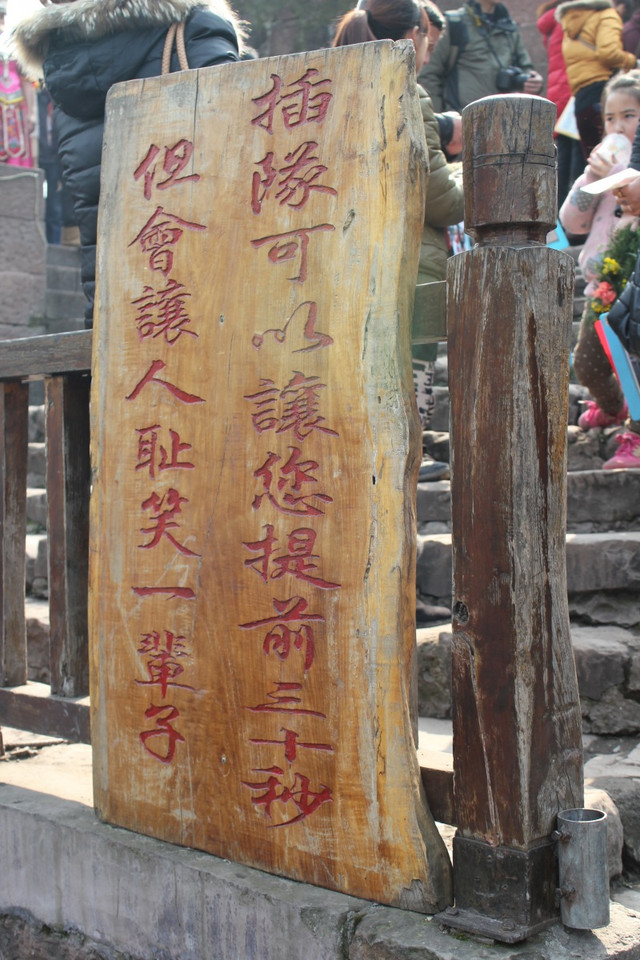 插隊可以讓您提前三十秒
但會讓人耻笑一輩子